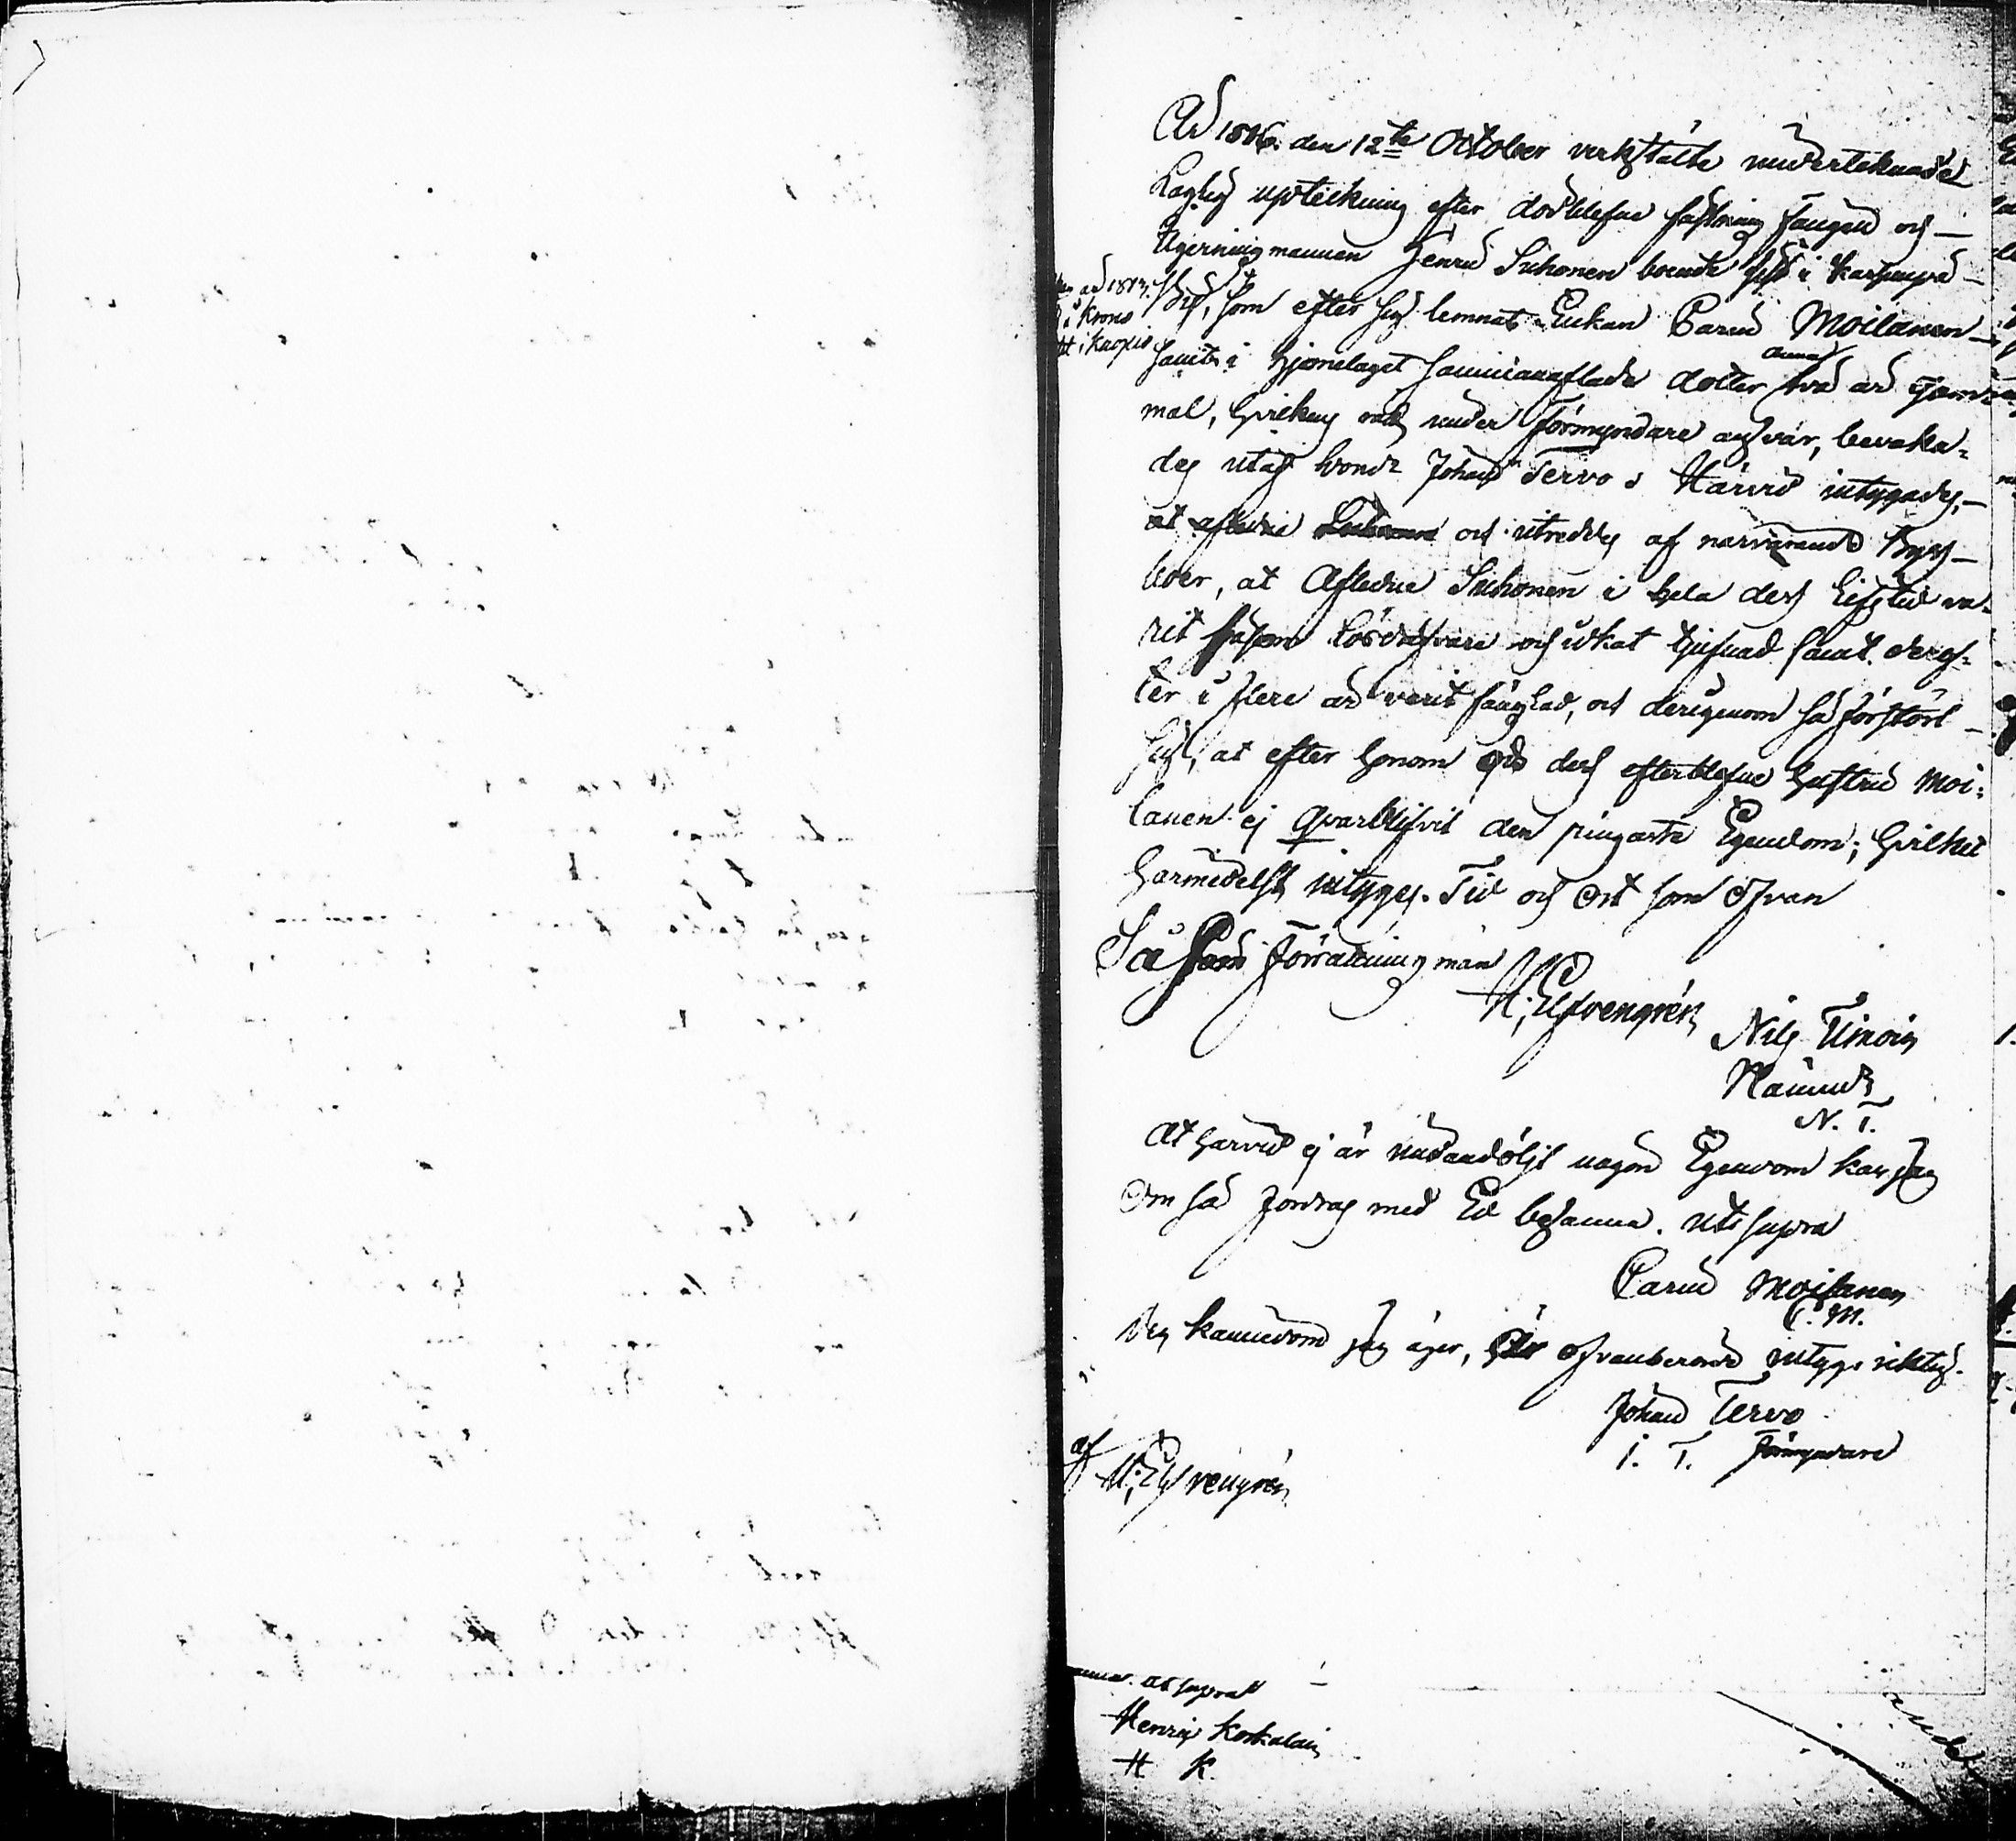 År 1816. den 12te October verkstälte undertecknade
Laglig upteckning efter dödblefne fästning Fången och
Ogerningsmannen Henric Suhonen boende uti i
år 1813.
i Krono
i Kuopio
som efter sig lemnat Enkan Carin Moilanen
samt i Hjonelaget sammanaflade dotter Anna två år Gam-
mal, hvilkens rätt under förmyndare ansvar, bevaka-
des utaf bonde Johan Tervo. Härvid intygades,
at aflidne och utreddes af närvarande Bys-
boer, at Aflidne Suhonen i hela dess Lifstid va-
rit såsom Lösdrifvare och idkat tjufnad samt deref-
ter i flere år varit fängslad, och derigenom så förstört
sig, at efter honom och dess efterblefne hustru Moi-
lanen ej qvarblifvit den ringaste Egendom; hvilket
härmedelst intyges. Tid och Ort som Ofvan
Såsom Förrättningsman
Nils Timoin
Nämnd:
N. T.
At härvid ej är undandöljt någon Egendom kan jag
Om så fordras med Ed besanna. Ut supra
Carin Moilanen
C. M.
Den kännedom jag äger, är ofvanberörde intyge riktig.
Johan Tervo
J. T. Förmyndare
af
at supra
Henric Koskalain
H K